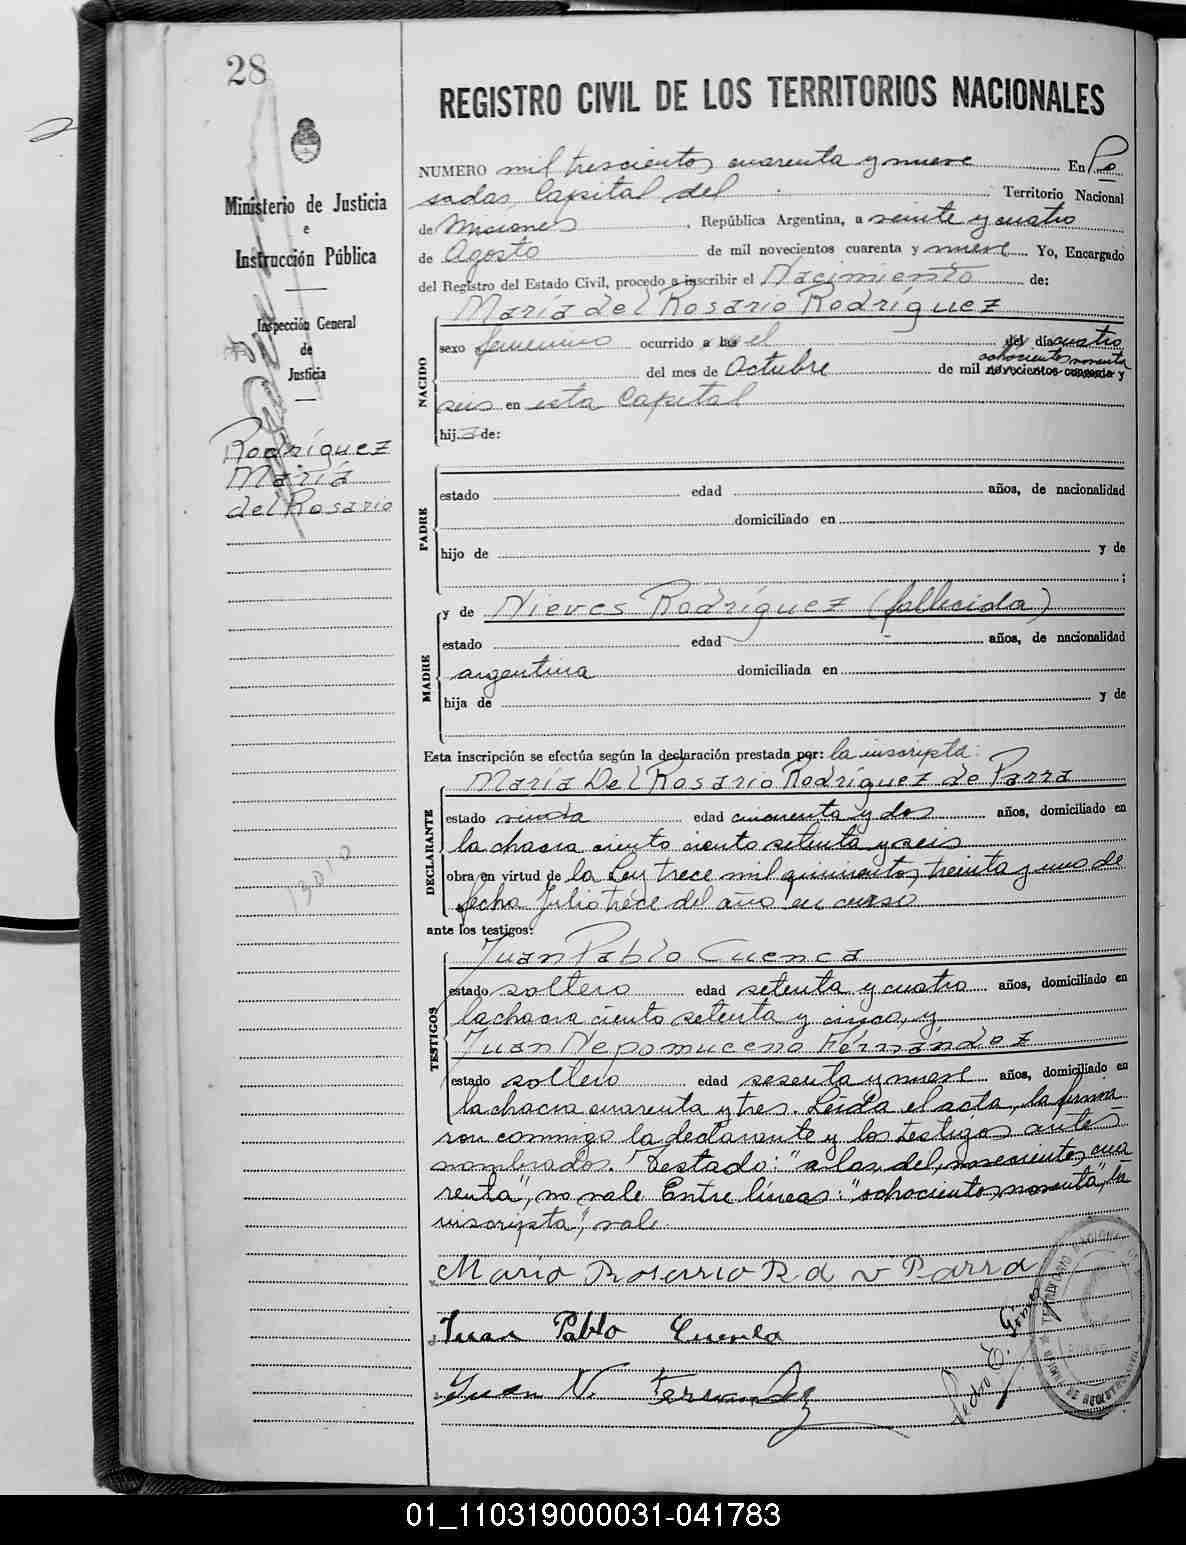 28
REGISTRO CIVIL DE LOS TERRITORIOS NACIONALES
Ministerio de Justicia
e
Instrucción Pública
Inspección General
de
Justicia
Rodríguez
María
del Rosario
NUMERO mil trescientos cuarenta y nueve En Po
sadas, Capital del Territorio Nacional
de Misiones, República Argentina, a veinte y cuatro
de Agosto de mil novecientos cuarenta y nueve Yo, Encargado
del Registro del Estado Civil, procedo a inscribir el Nacimiento de:
María del Rosario Rodríguez
NACIDO
sexo femenino ocurrido a las el del día cuatro
ochocientos noventa
del mes de Octubre de mil novecientos cuarenta y
seis en esta Capital
hija de:
PADRE
estado edad años, de nacionalidad
domiciliado en
hijo de y de
;
y de Nieves Rodríguez (fallecida)
MADRE
estado edad años, de nacionalidad
argentina domiciliada en
hija de y de
Esta inscripción se efectúa según la declaración prestada por: la inscripta:
María Del Rosario Rodríguez de Parra
DECLARANTE
estado viuda edad cincuenta y dos años, domiciliado en
la chacra ciento ciento setenta y seis
obra en virtud de la Ley trece mil quinientos treinta y uno de
fecha Julio trece del año en curso
ante los testigos:
Juan Pablo Cuenca
TESTIGOS
estado soltero edad setenta y cuatro años, domiciliado en
la chacra ciento setenta y cinco, y
Juan Nepomuceno Fernández
estado soltero edad sesenta y nueve años, domiciliado en
la chacra cuarenta y tres. Leída el acta, la firma
ron conmigo la declarante y los testigos antes
nombrados. Testado: "a las, del, novecientos, cua
renta", no vale. Entre líneas: "ochocientos noventa", "la
inscripta", vale.
María Rosario R d v Parra
Juan Pablo Cuenca
Juan N. Fernandez
Pedro E. Gómez
13010
01_110319000031-041783